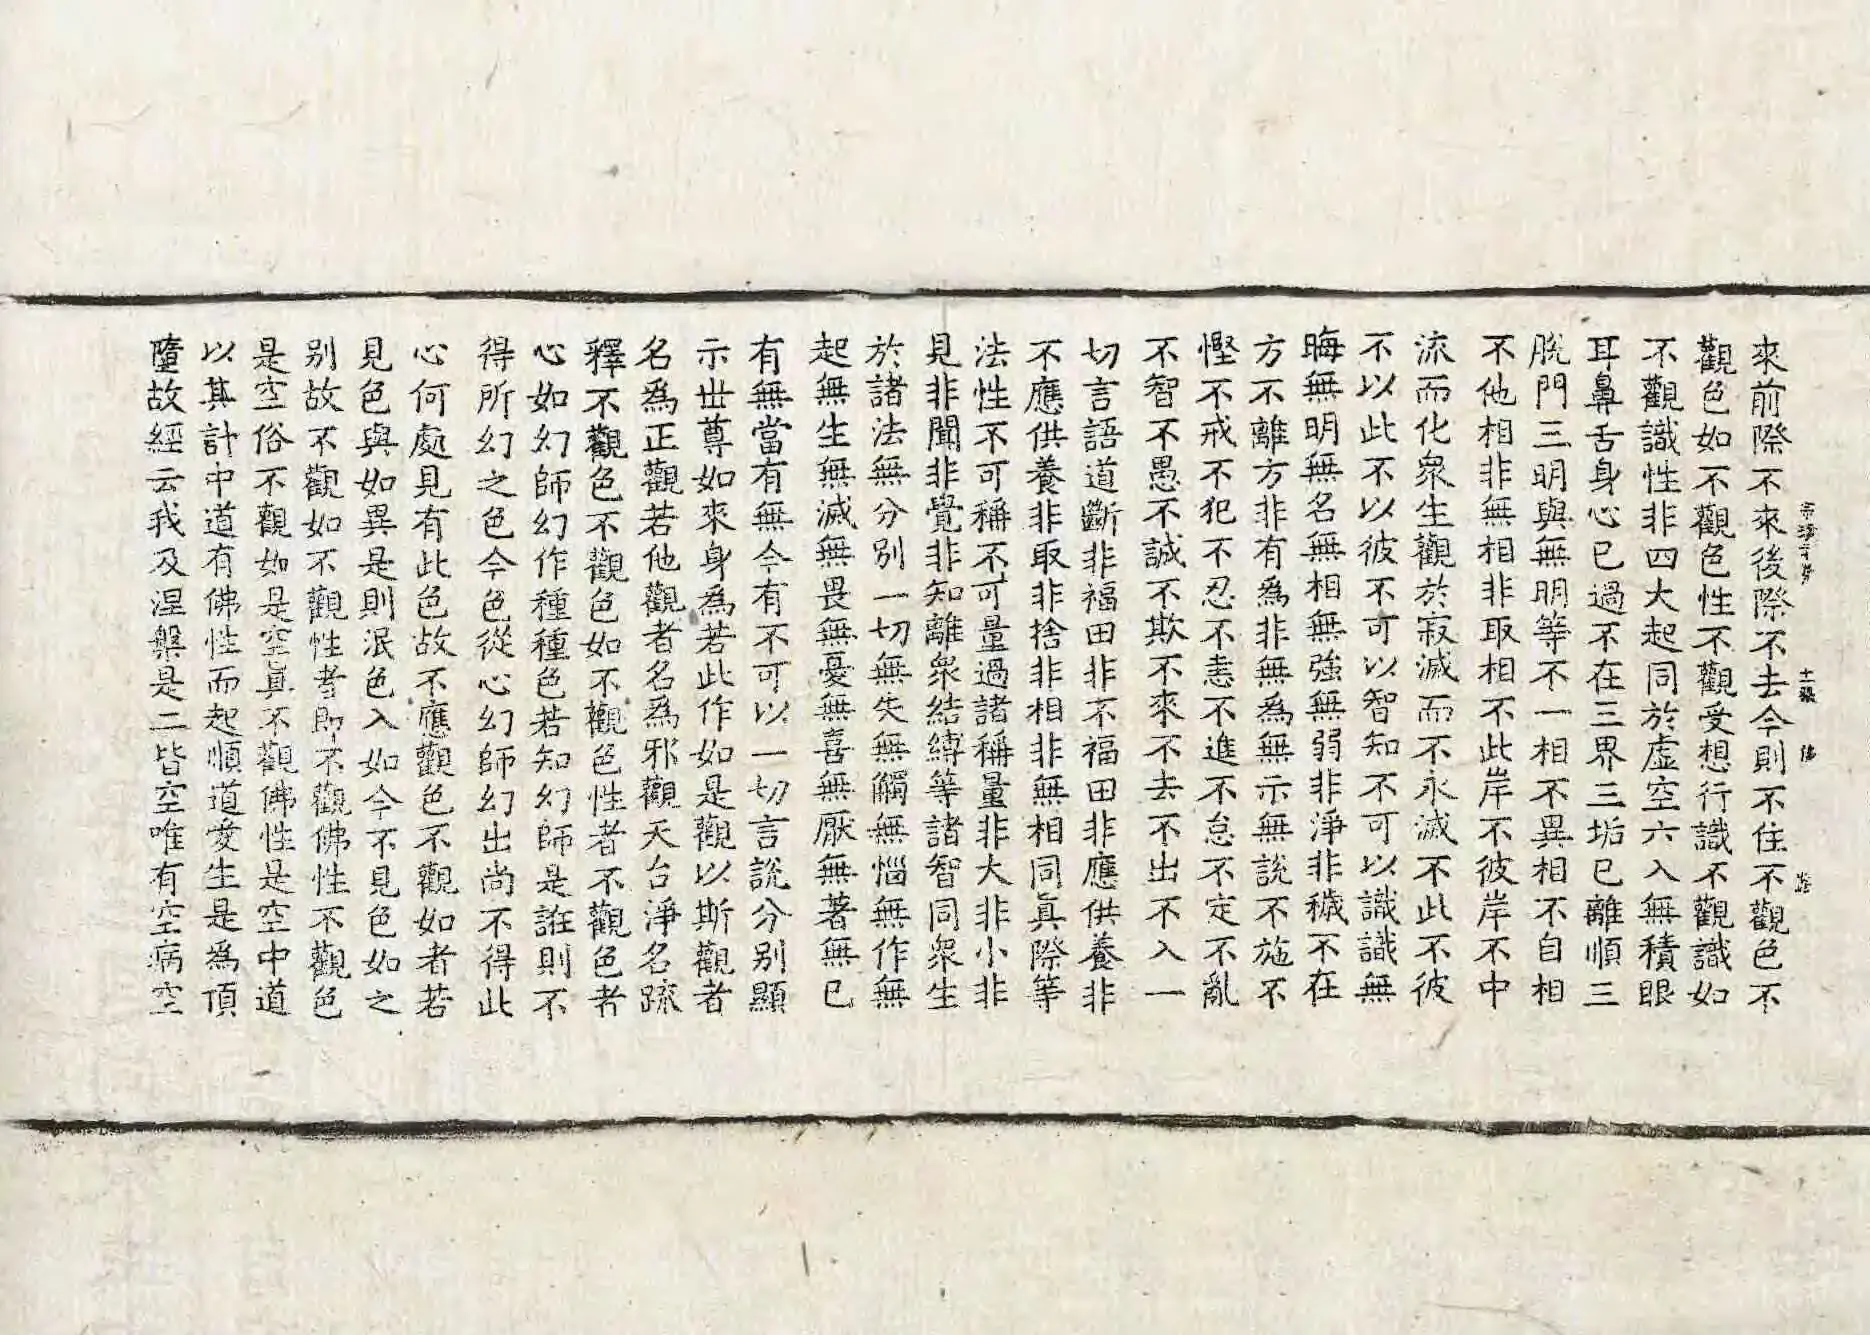 來前際不來後際不去今則不住不觀色不
觀色如不觀色性不觀受想行識不觀識如
不觀識性非四大起同於虛空六入無積眼
耳鼻舌身心已過不在三界三垢已離順三
脫門三明與無明等不一相不異相不自相
不他相非無相非取相不此岸不彼岸不中
流而化眾生觀於寂滅而不永滅不此不彼
不以此不以彼不可以智知不可以識識無
晦無明無名無相無強無弱非淨非穢不在
方不離方非有為非無為無示無說不施不
慳不戒不犯不忍不恚不進不怠不定不亂
不智不愚不誠不欺不來不去不出不入一
切言語道斷非福田非不福田非應供養非
不應供養非取非捨非相非無相同真際等
法性不可稱不可量過諸稱量非大非小非
見非聞非覺非知離眾結縛等諸智同眾生
於諸法無分別一切無失無觸無惱無作無
起無生無滅無畏無憂無喜無厭無著無已
有無當有無今有不可以一切言說分別顯
示世尊如來身為若此作如是觀以斯觀者
名為正觀若他觀者名為邪觀天台淨名疏
釋不觀色不觀色如不觀色性者不觀色者
心如幻師幻作種種色若知幻師是誑則不
得所幻之色今色從心幻師幻出尚不得此
心何處見有此色故不應觀色不觀如者若
見色與如異是則泯色入如今不見色如之
別故不觀如不觀性者即不觀佛性不觀色
是空俗不觀如是空真不觀佛性是空中道
以其計中道有佛性而起順道愛生是為頂
墮故經云我及涅槃是二皆空唯有空病空